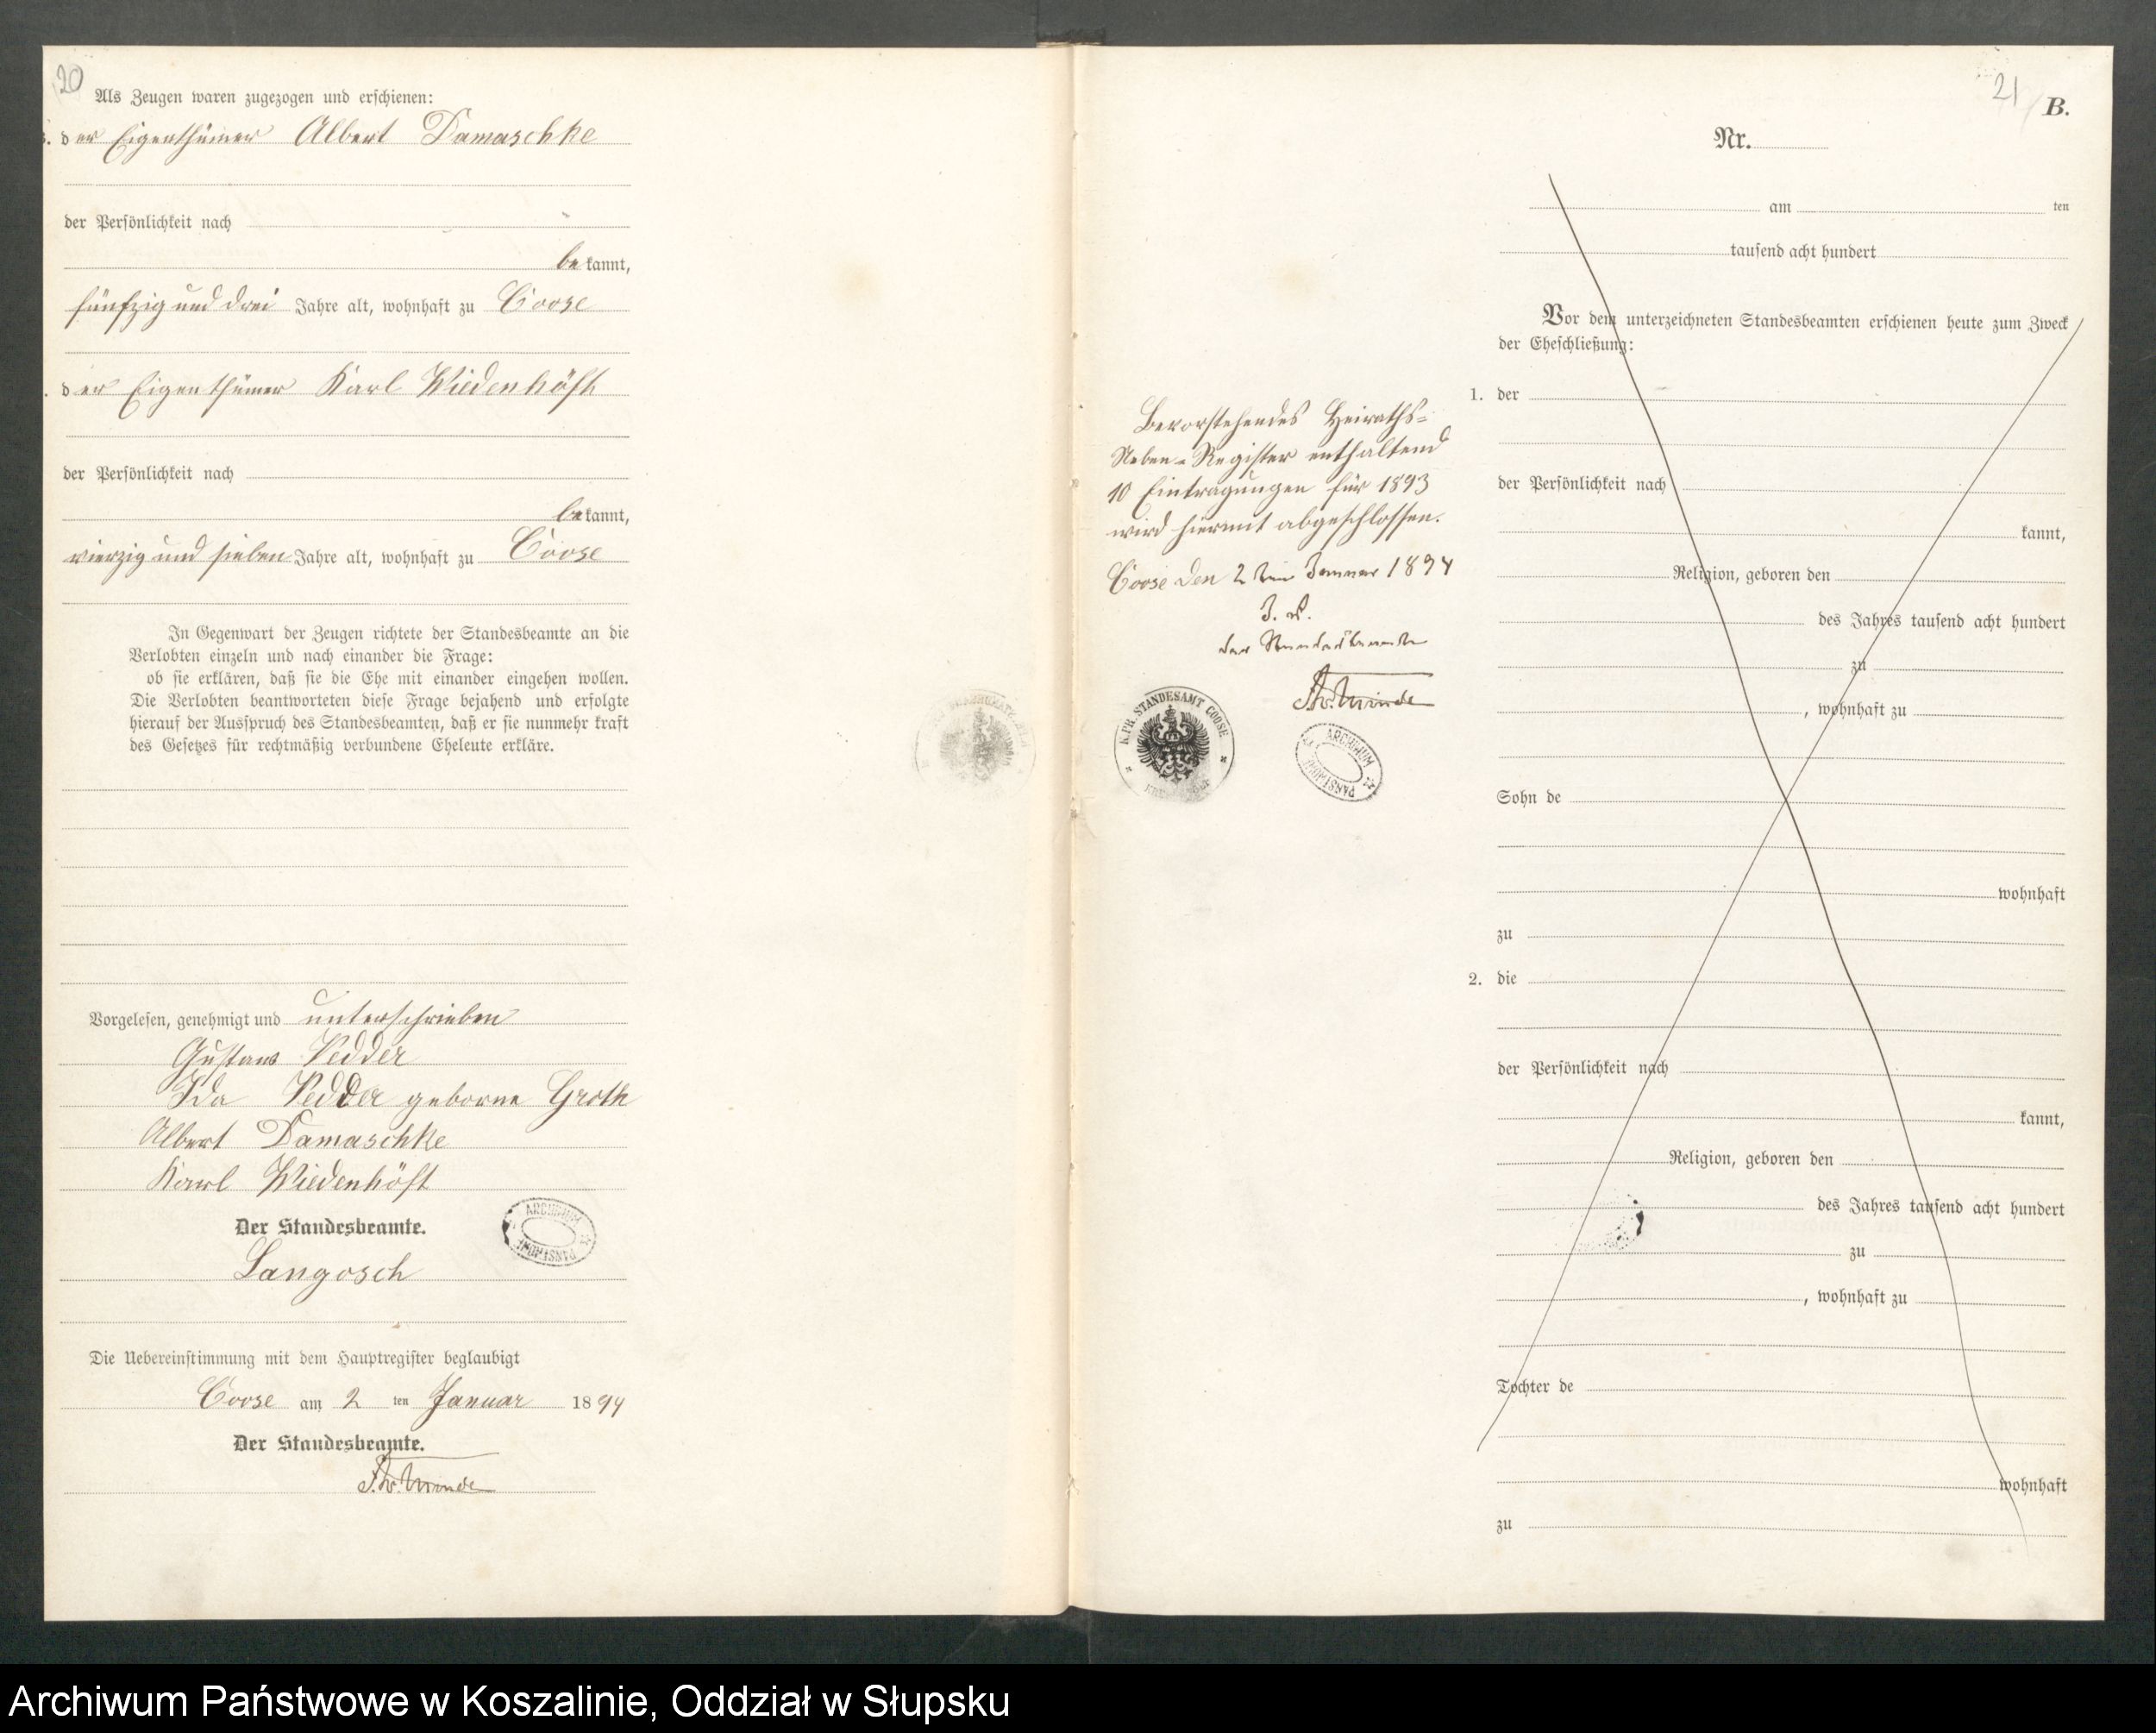 20
Als Zeugen waren zugezogen und erschienen:
der Eigenthümer Albert Damaschke
der Persönlichkeit nach
bekannt,
fünfzig und drei Jahre alt, wohnhaft zu Coose
der Eigenthümer Karl Wiedenhöft
der Persönlichkeit nach
bekannt,
vierzig und sieben Jahre alt, wohnhaft zu Coose
In Gegenwart der Zeugen richtete der Standesbeamte an die
Verlobten einzeln und nach einander die Frage:
ob sie erklären, daß sie die Ehe mit einander eingehen wollen.
Die Verlobten beantworteten diese Frage bejahend und erfolgte
hierauf der Ausspruch des Standesbeamten, daß er sie nunmehr kraft
des Gesetzes für rechtmäßig verbundene Eheleute erkläre.
Vorgelesen, genehmigt und unterschrieben
Gustav Vedder
Ida Vedder geborne Groth
Albert Damaschke
Karl Wiedenhöft
Der Standesbeamte.
ARCHIWUM PAŃSTWOWE
Langosch
Die Uebereinstimmung mit dem Hauptregister beglaubigt
Coose am 2 ten Januar 1894
Der Standesbeamte.
21
B.
Nr.
am ten
tausend acht hundert
Vor dem unterzeichneten Standesbeamten erschienen heute zum Zweck
der Eheschließung:
1. der
der Persönlichkeit nach
kannt,
Religion, geboren den
des Jahres tausend acht hundert
zu
, wohnhaft zu
Sohn de
wohnhaft
zu
2. die
der Persönlichkeit nach
kannt,
Religion, geboren den
des Jahres tausend acht hundert
zu
, wohnhaft zu
Tochter de
wohnhaft
zu
Bevorstehendes Heiraths-
Neben-Register enthaltend
10 Eintragungen für 1893
wird hiermit abgeschlossen.
Coose den 2ten Januar 1894
J. V.
der Standesbeamte
K. PR. STANDESAMT COOSE
ARCHIWUM PAŃSTWOWE
Archiwum Państwowe w Koszalinie, Oddział w Słupsku